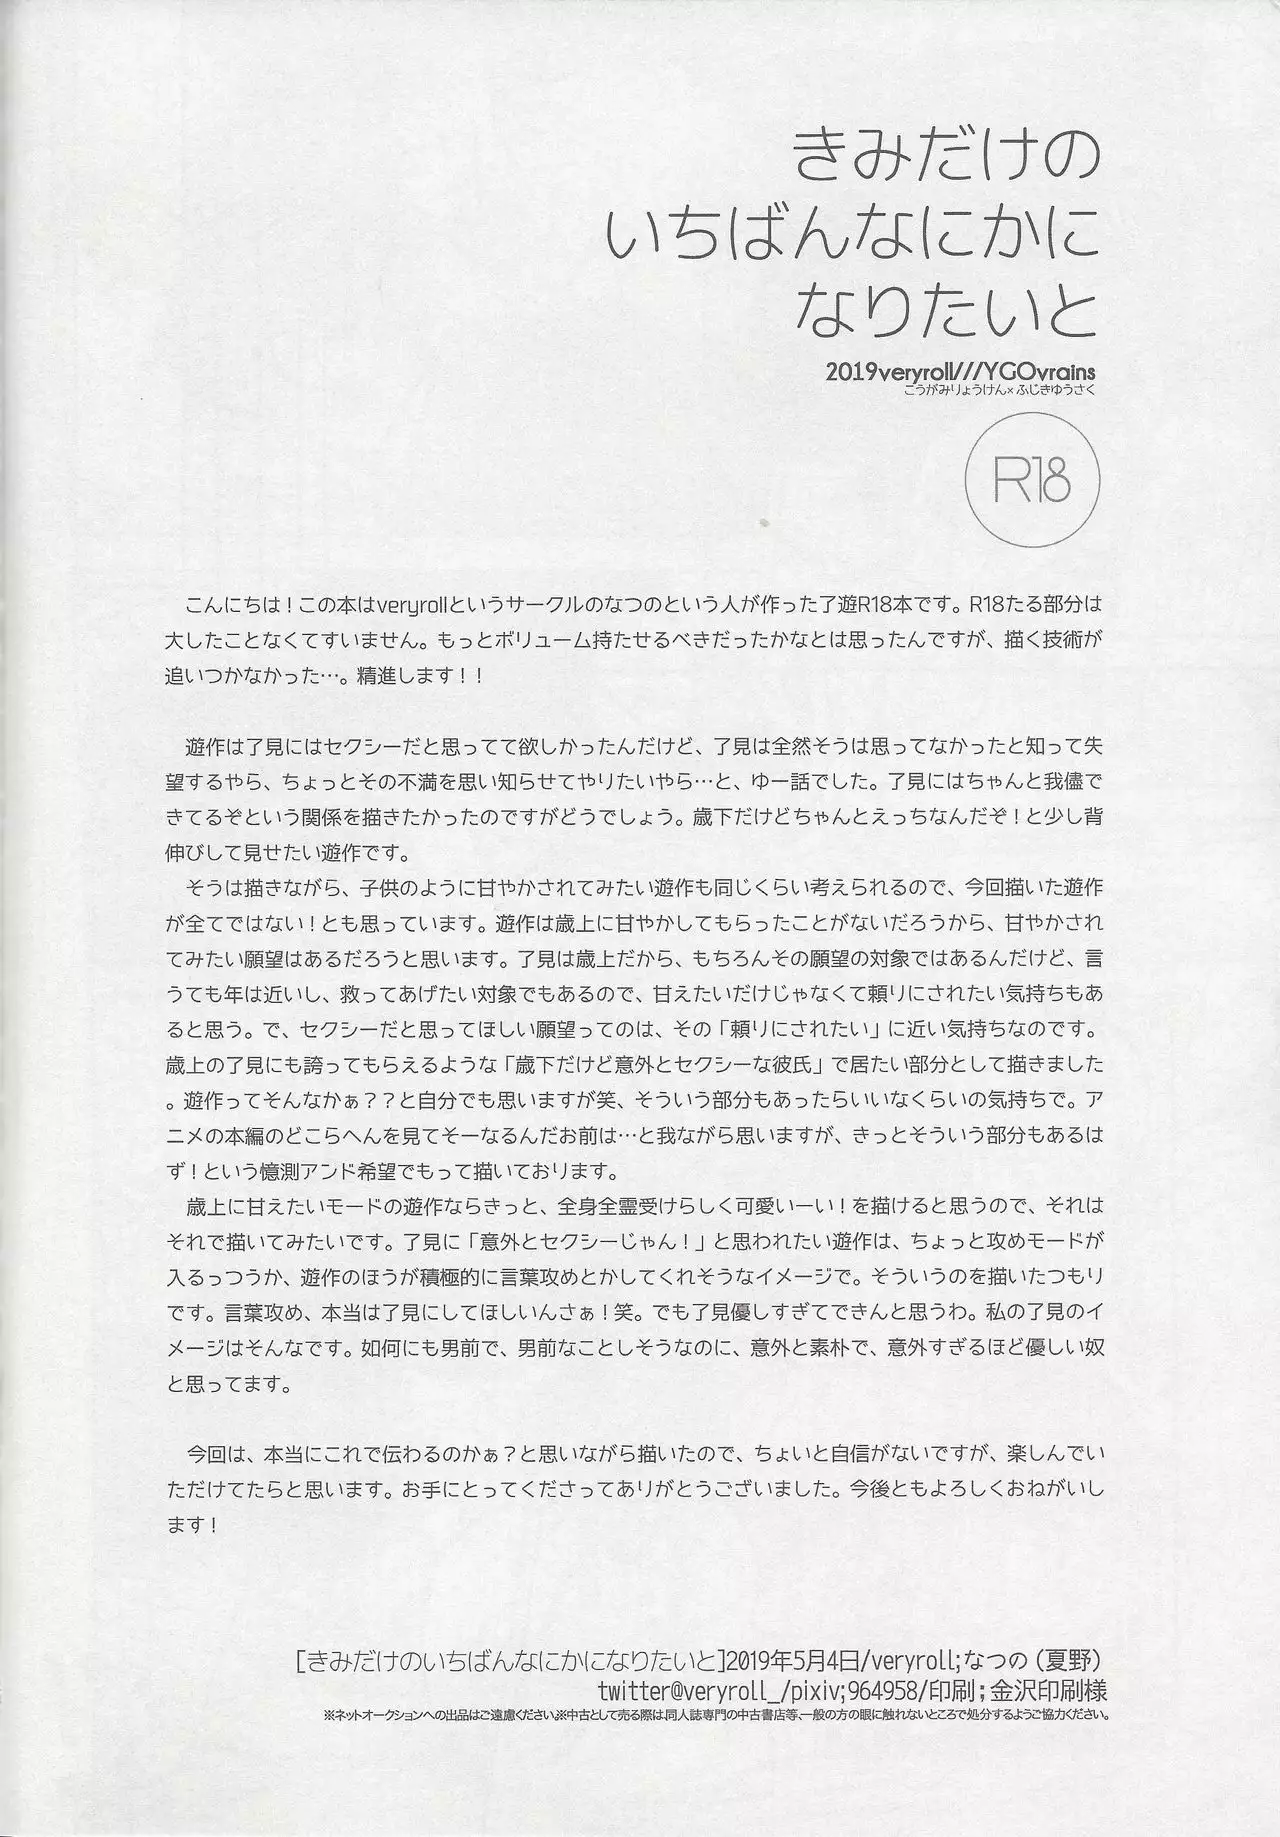 きみだけの
いちばんなにかに
なりたいと
2019veryroll///YGOvrains
こうがみりょうけん×ふじきゆうさく
R18
こんにちは！この本はveryrollというサークルのなつのという人が作った了遊R18本です。R18たる部分は
大したことなくてすいません。もっとボリューム持たせるべきだったかなとは思ったんですが、描く技術が
追いつかなかった…。精進します！！
遊作は了見にはセクシーだと思ってて欲しかったんだけど、了見は全然そうは思ってなかったと知って失
望するやら、ちょっとその不満を思い知らせてやりたいやら…と、ゆー話でした。了見にはちゃんと我儘で
きてるぞという関係を描きたかったのですがどうでしょう。歳下だけどちゃんとえっちなんだぞ！と少し背
伸びして見せたい遊作です。
そうは描きながら、子供のように甘やかされてみたい遊作も同じくらい考えられるので、今回描いた遊作
が全てではない！とも思っています。遊作は歳上に甘やかしてもらったことがないだろうから、甘やかされ
てみたい願望はあるだろうと思います。了見は歳上だから、もちろんその願望の対象ではあるんだけど、言
うても年は近いし、救ってあげたい対象でもあるので、甘えたいだけじゃなくて頼りにされたい気持ちもあ
ると思う。で、セクシーだと思ってほしい願望ってのは、その「頼りにされたい」に近い気持ちなのです。
歳上の了見にも誇ってもらえるような「歳下だけど意外とセクシーな彼氏」で居たい部分として描きました
。遊作ってそんなかぁ？？と自分でも思いますが笑、そういう部分もあったらいいなくらいの気持ちで。ア
ニメの本編のどこらへんを見てそーなるんだお前は…と我ながら思いますが、きっとそういう部分もあるは
ず！という憶測アンド希望でもって描いております。
歳上に甘えたいモードの遊作ならきっと、全身全霊受けらしく可愛いーい！を描けると思うので、それは
それで描いてみたいです。了見に「意外とセクシーじゃん！」と思われたい遊作は、ちょっと攻めモードが
入るっつうか、遊作のほうが積極的に言葉攻めとかしてくれそうなイメージで。そういうのを描いたつもり
です。言葉攻め、本当は了見にしてほしいんさぁ！笑。でも了見優しすぎてできんと思うわ。私の了見のイ
メージはそんなです。如何にも男前で、男前なことしそうなのに、意外と素朴で、意外すぎるほど優しい奴
と思ってます。
今回は、本当にこれで伝わるのかぁ？と思いながら描いたので、ちょいと自信がないですが、楽しんでい
ただけてたらと思います。お手にとってくださってありがとうございました。今後ともよろしくおねがいし
ます！
[きみだけのいちばんなにかになりたいと]2019年5月4日/veryroll;なつの（夏野）
twitter@veryroll_/pixiv;964958/印刷；金沢印刷様
※ネットオークションへの出品はご遠慮ください。※中古として売る際は、同人誌専門の中古書店等、一般の方の眼に触れないところで処分するようご協力ください。